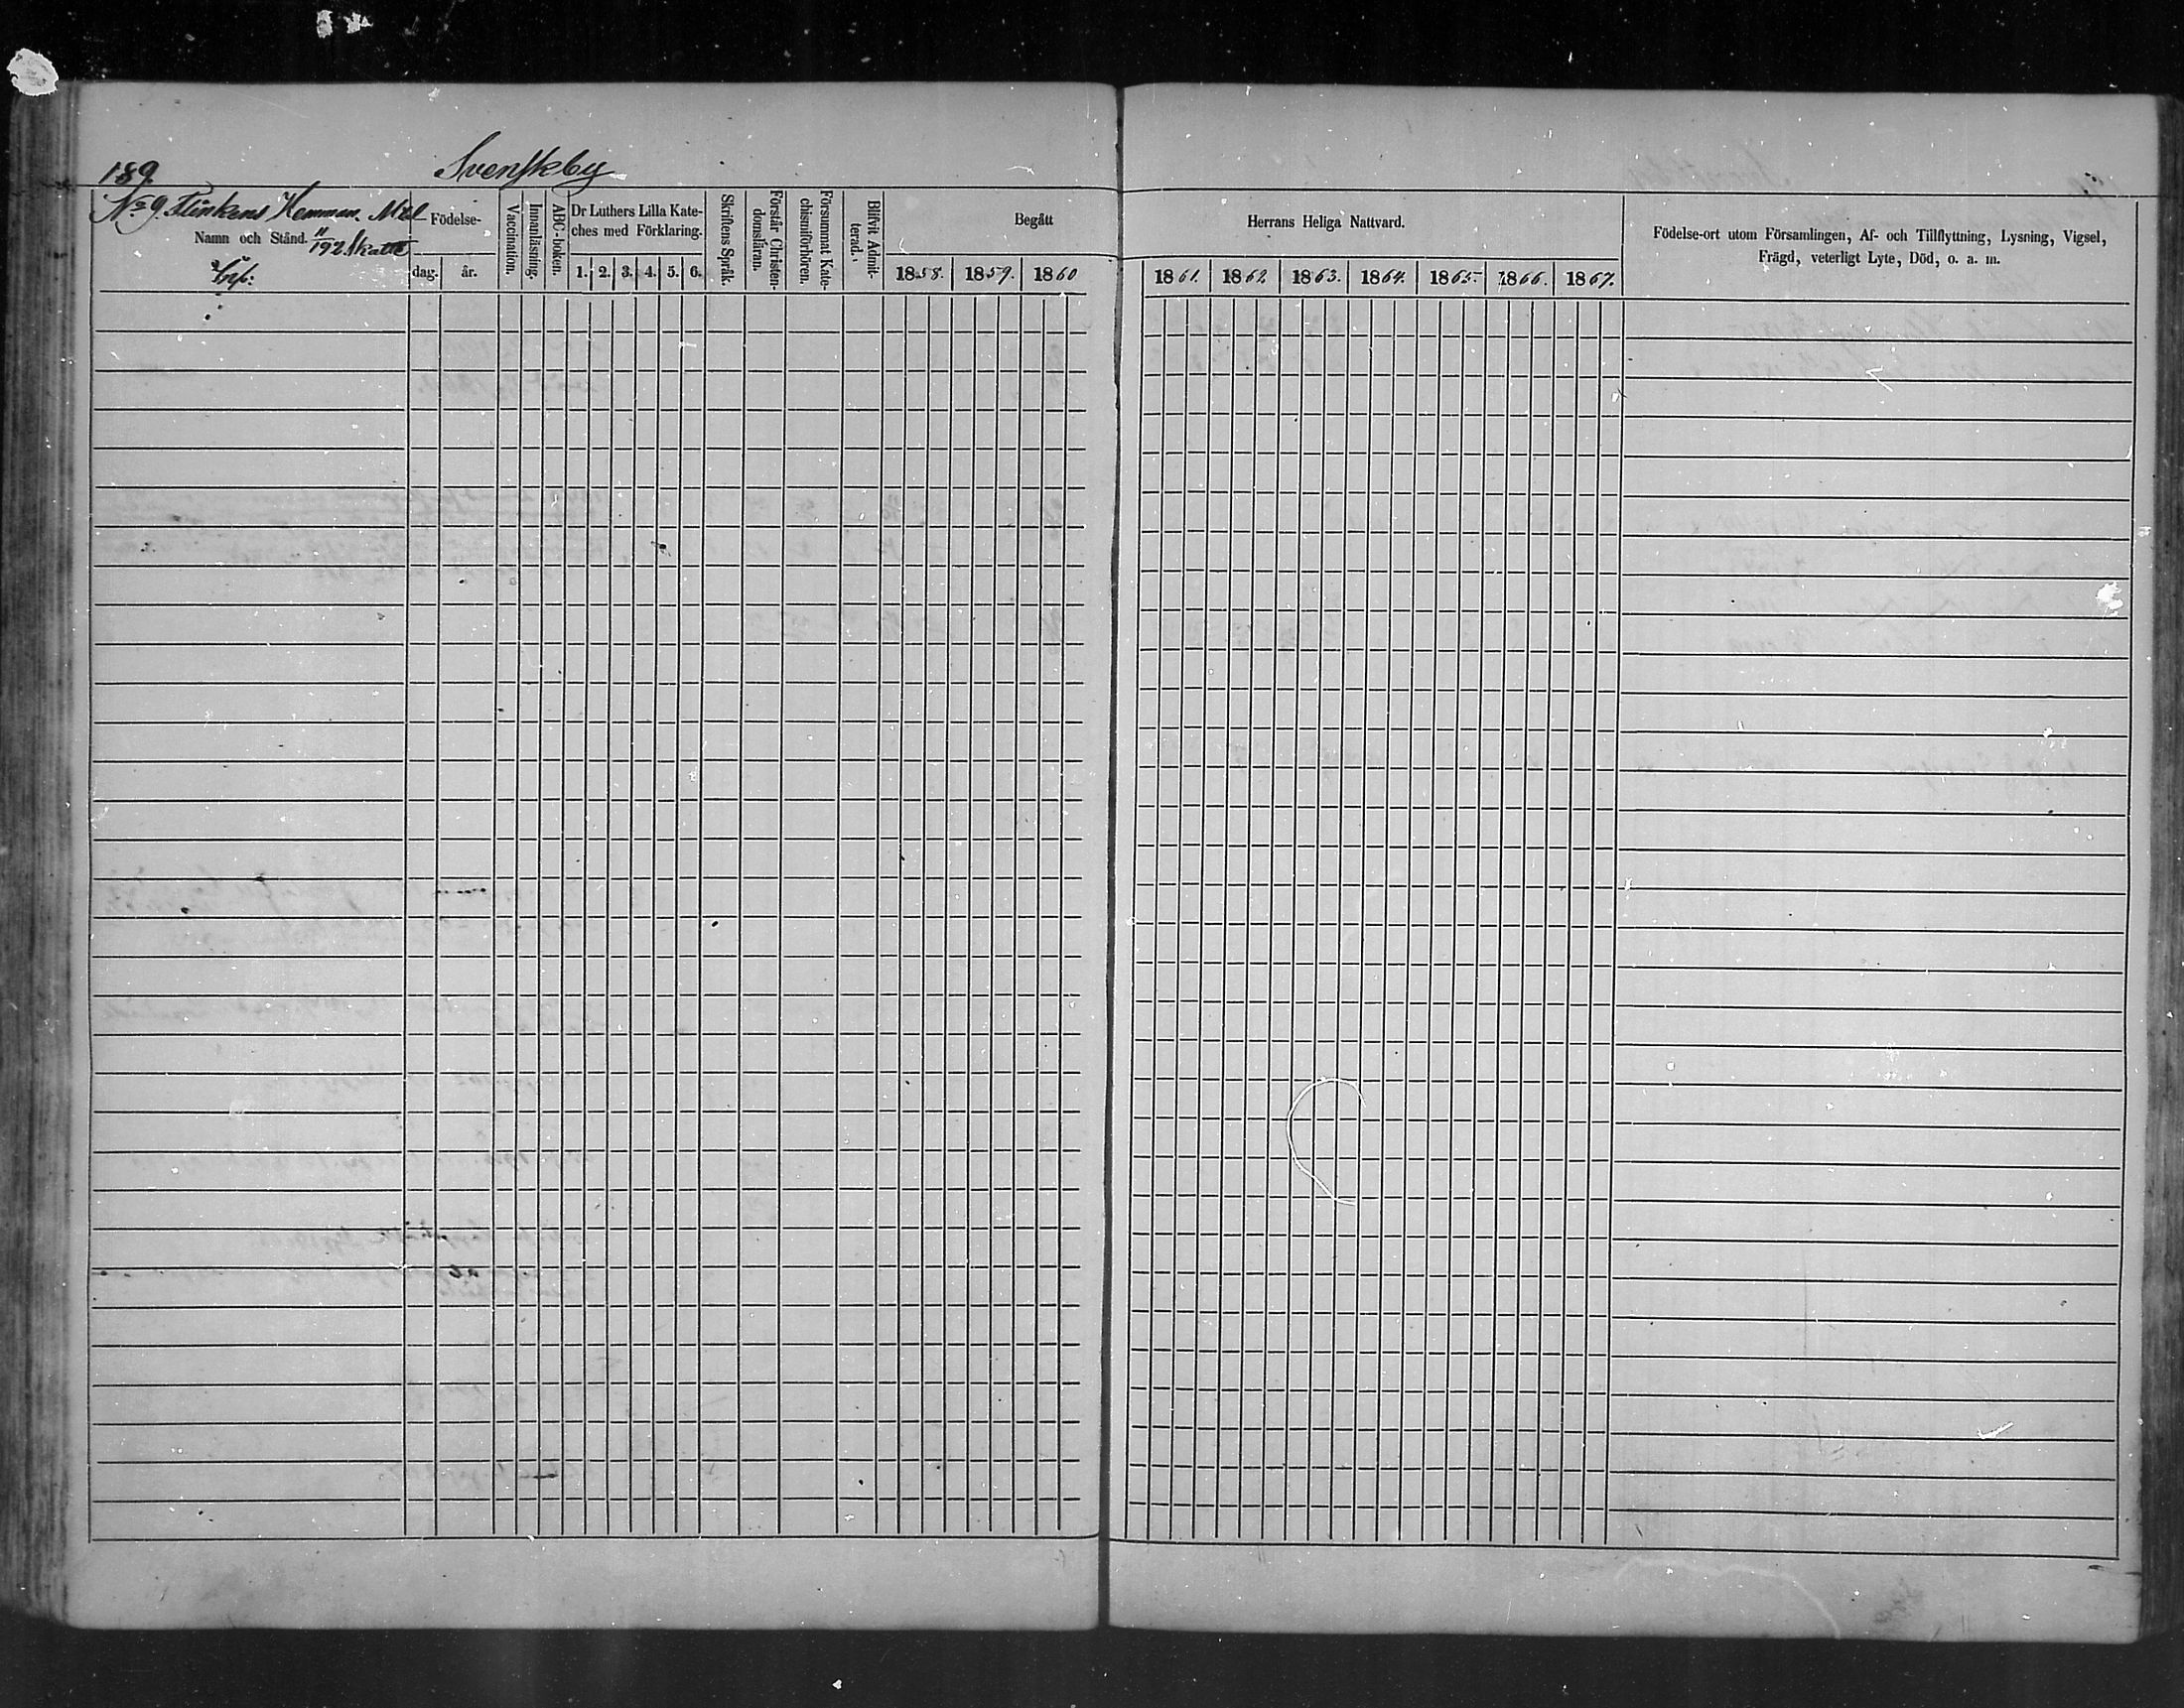 189.
Svenskby
No 9. Flinkens Hemman. Mtl
11/192 Skatte
Namn och Stånd.
Födelse-
dag. år.
Vaccination.
Innanläsning.
ABC-boken.
Dr Luthers Lilla Kate-
ches med Förklaring.
1. 2. 3. 4. 5. 6.
Skriftens Språk.
Förstår Christen-
domsläran.
Försummat Kate-
chismiförhören.
Blifvit Admit-
terad.
Begått Herrans Heliga Nattvard.
1858. 1859. 1860 1861. 1862. 1863. 1864. 1865. 1866. 1867.
Födelse-ort utom Församlingen, Af- och Tillflyttning, Lysning, Vigsel,
Frägd, veterligt Lyte, Död, o. a. m.